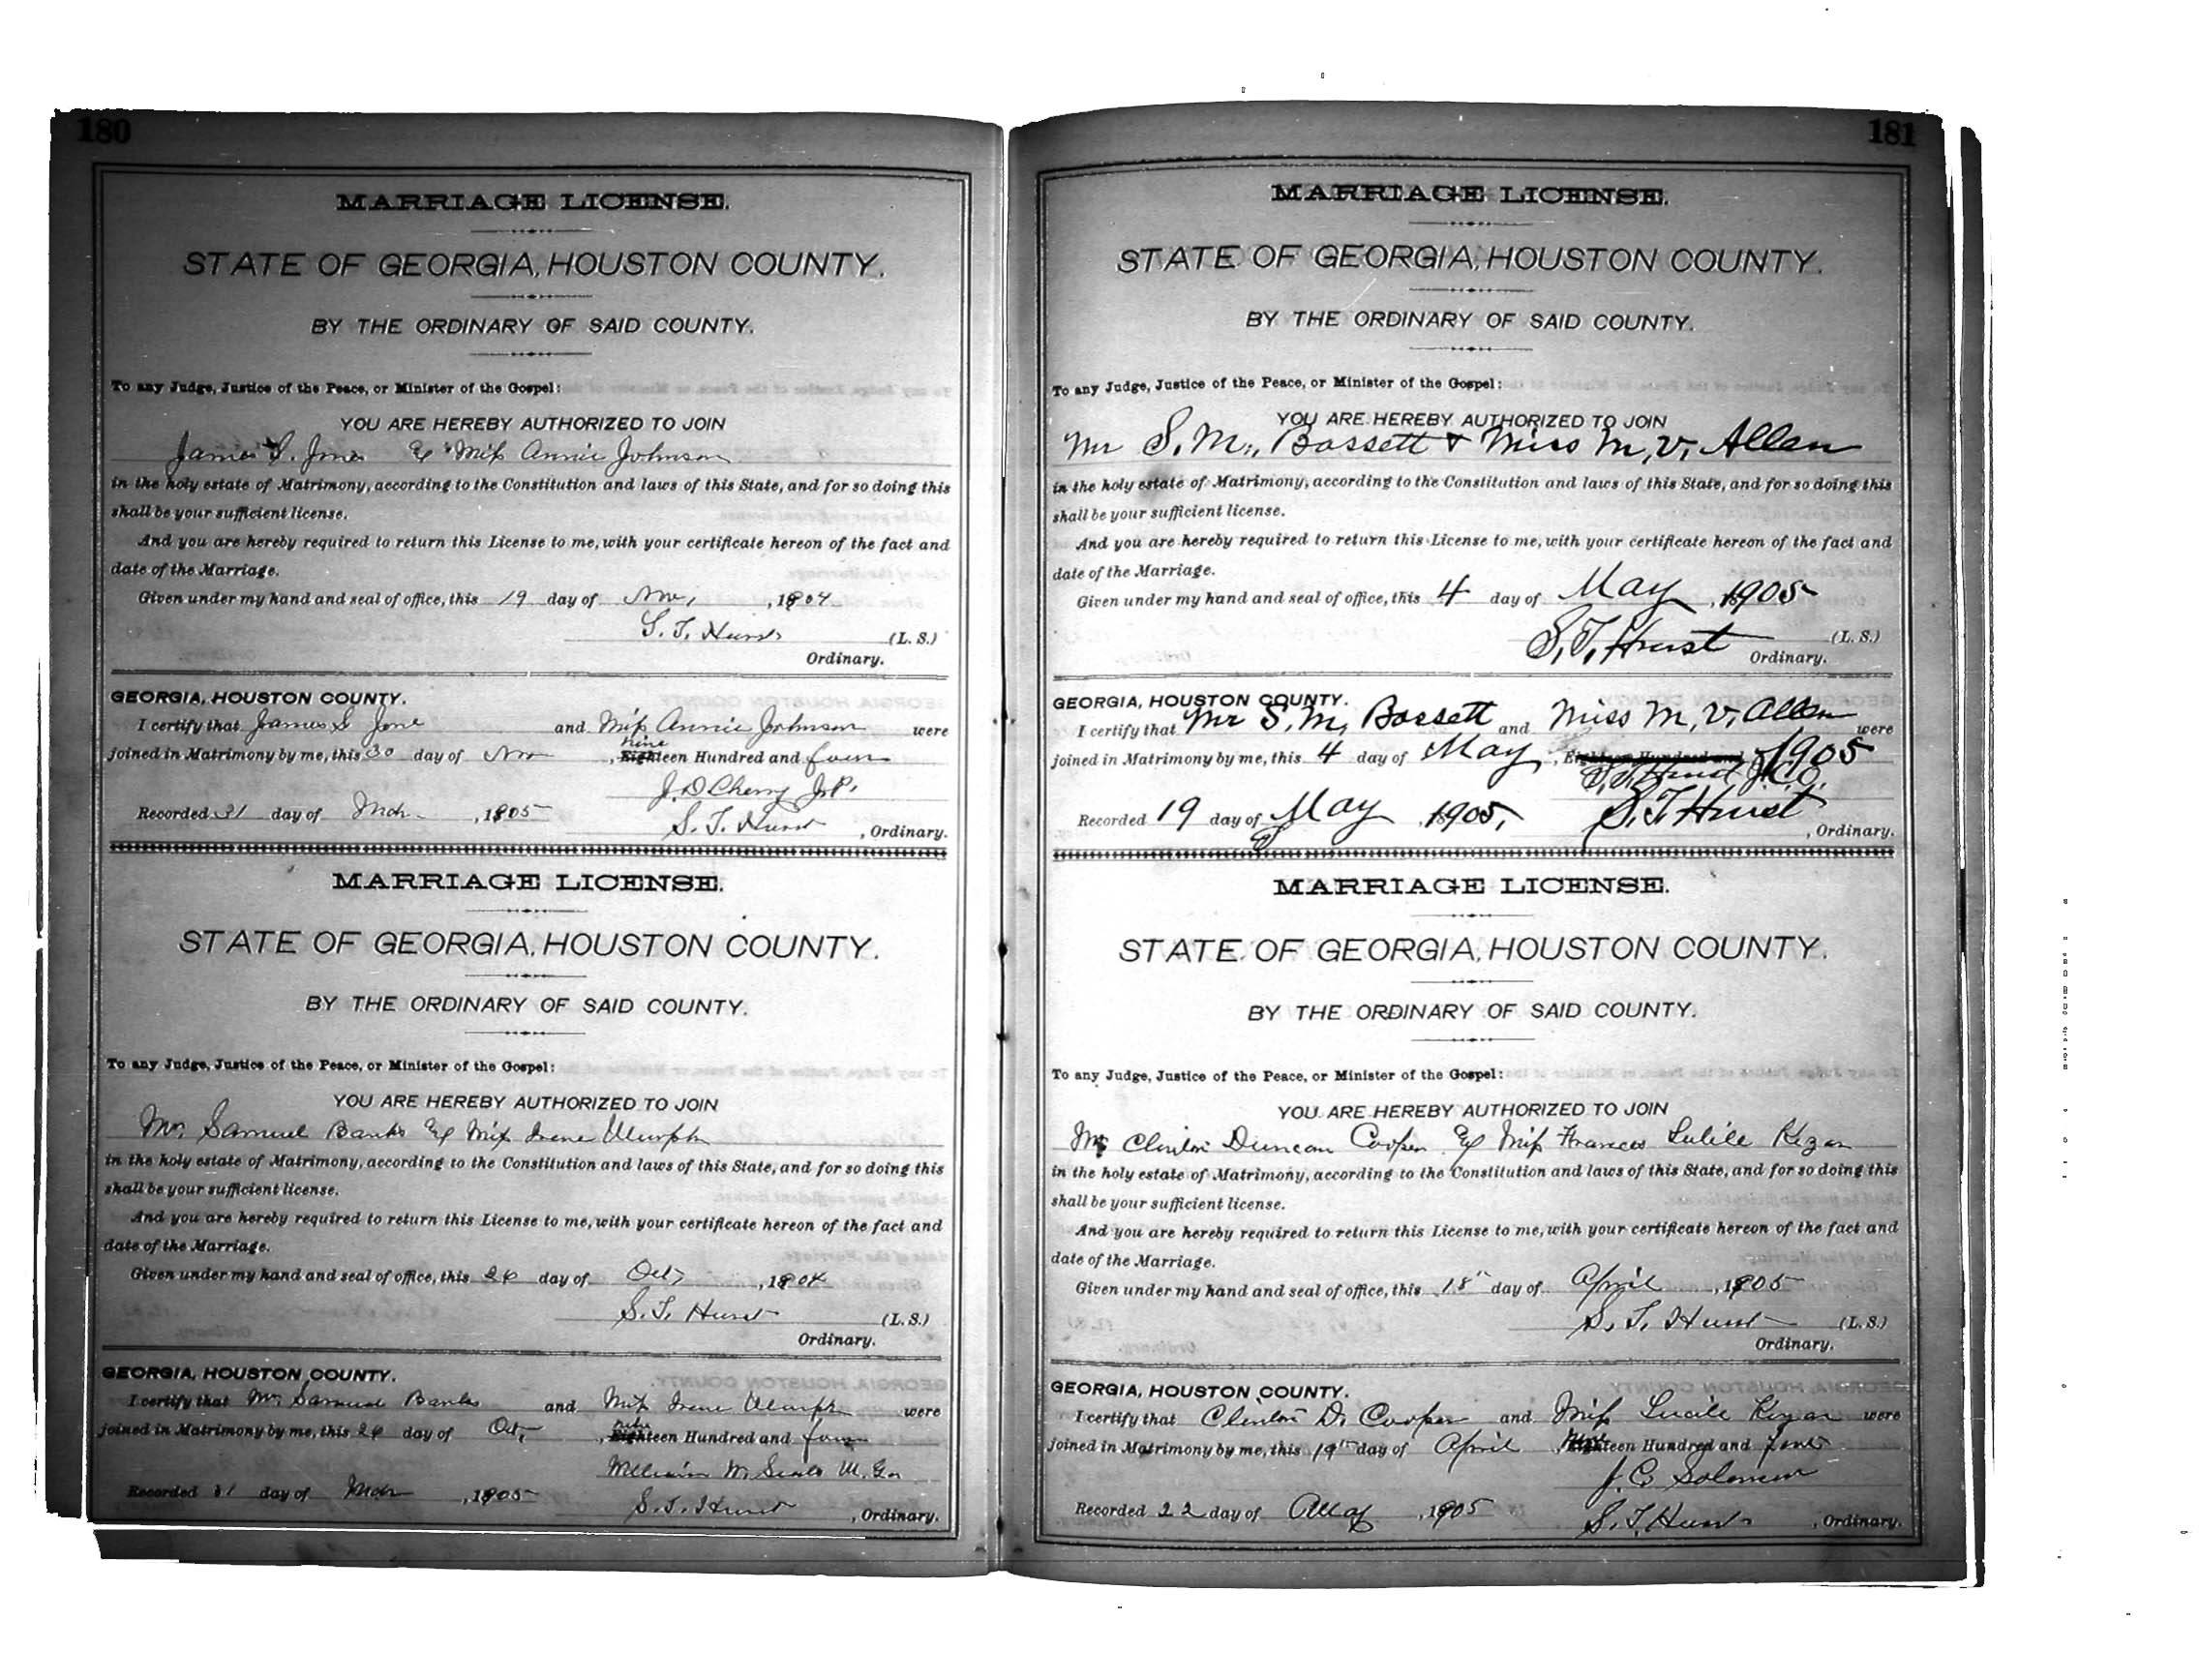 180
MARRIAGE LICENSE.
STATE OF GEORGIA, HOUSTON COUNTY.
BY THE ORDINARY OF SAID COUNTY.
To any Judge, Justice of the Peace, or Minister of the Gospel:
YOU ARE HEREBY AUTHORIZED TO JOIN
James S. Jones & Miss Annie Johnson
in the holy estate of Matrimony, according to the Constitution and laws of this State, and for so doing this
shall be your sufficient license.
And you are hereby required to return this License to me, with your certificate hereon of the fact and
date of the Marriage.
Given under my hand and seal of office, this 19 day of Nov, , 1904
S. T. Hurst (L. S.)
Ordinary.
GEORGIA, HOUSTON COUNTY.
I certify that James S Jone and Miss Annie Johnson were
joined in Matrimony by me, this 30 day of Nov , nineteen Hundred and four
J. D Cherry J.P.
Recorded 31 day of Mch , 1905 S. T. Hurst , Ordinary.
MARRIAGE LICENSE.
STATE OF GEORGIA, HOUSTON COUNTY.
BY THE ORDINARY OF SAID COUNTY.
To any Judge, Justice of the Peace, or Minister of the Gospel:
YOU ARE HEREBY AUTHORIZED TO JOIN
Mr. Samuel Banks & Miss Irene Murph
in the holy estate of Matrimony, according to the Constitution and laws of this State, and for so doing this
shall be your sufficient license.
And you are hereby required to return this License to me, with your certificate hereon of the fact and
date of the Marriage.
Given under my hand and seal of office, this 26 day of Oct, , 1904
S. T. Hurst (L. S.)
Ordinary.
GEORGIA, HOUSTON COUNTY.
I certify that Mr. Samuel Banks and Miss Irene Murph were
joined in Matrimony by me, this 26 day of Oct, , nineteen Hundred and four
William W. Seals M.
Recorded 31 day of Mch , 1905 S. T. Hurst , Ordinary.
181
MARRIAGE LICENSE.
STATE OF GEORGIA, HOUSTON COUNTY.
BY THE ORDINARY OF SAID COUNTY.
To any Judge, Justice of the Peace, or Minister of the Gospel:
YOU ARE HEREBY AUTHORIZED TO JOIN
Mr S. M. Bassett & Miss M. V. Allen
in the holy estate of Matrimony, according to the Constitution and laws of this State, and for so doing this
shall be your sufficient license.
And you are hereby required to return this License to me, with your certificate hereon of the fact and
date of the Marriage.
Given under my hand and seal of office, this 4 day of May , 1905
S. T. Hurst (L. S.)
Ordinary.
GEORGIA, HOUSTON COUNTY.
I certify that Mr S. M. Bassett and Miss M. V. Allen were
joined in Matrimony by me, this 4 day of May , Eighteen Hundred and 1905
S. T. Hurst
Recorded 19 day of May , 1905, S. T. Hurst , Ordinary.
MARRIAGE LICENSE.
STATE OF GEORGIA, HOUSTON COUNTY.
BY THE ORDINARY OF SAID COUNTY.
To any Judge, Justice of the Peace, or Minister of the Gospel:
YOU ARE HEREBY AUTHORIZED TO JOIN
Mr Clinton Duncan Cooper & Miss Frances Lulile Kezar
in the holy estate of Matrimony, according to the Constitution and laws of this State, and for so doing this
shall be your sufficient license.
And you are hereby required to return this License to me, with your certificate hereon of the fact and
date of the Marriage.
Given under my hand and seal of office, this 18" day of April , 1905
S. T. Hurst (L. S.)
Ordinary.
GEORGIA, HOUSTON COUNTY.
I certify that Clinton D. Cooper and Miss Lucile Kezar were
joined in Matrimony by me, this 19th day of April , Nineteen Hundred and
J. C. Solomon
Recorded 22 day of May , 1905 S. T. Hurst , Ordinary.